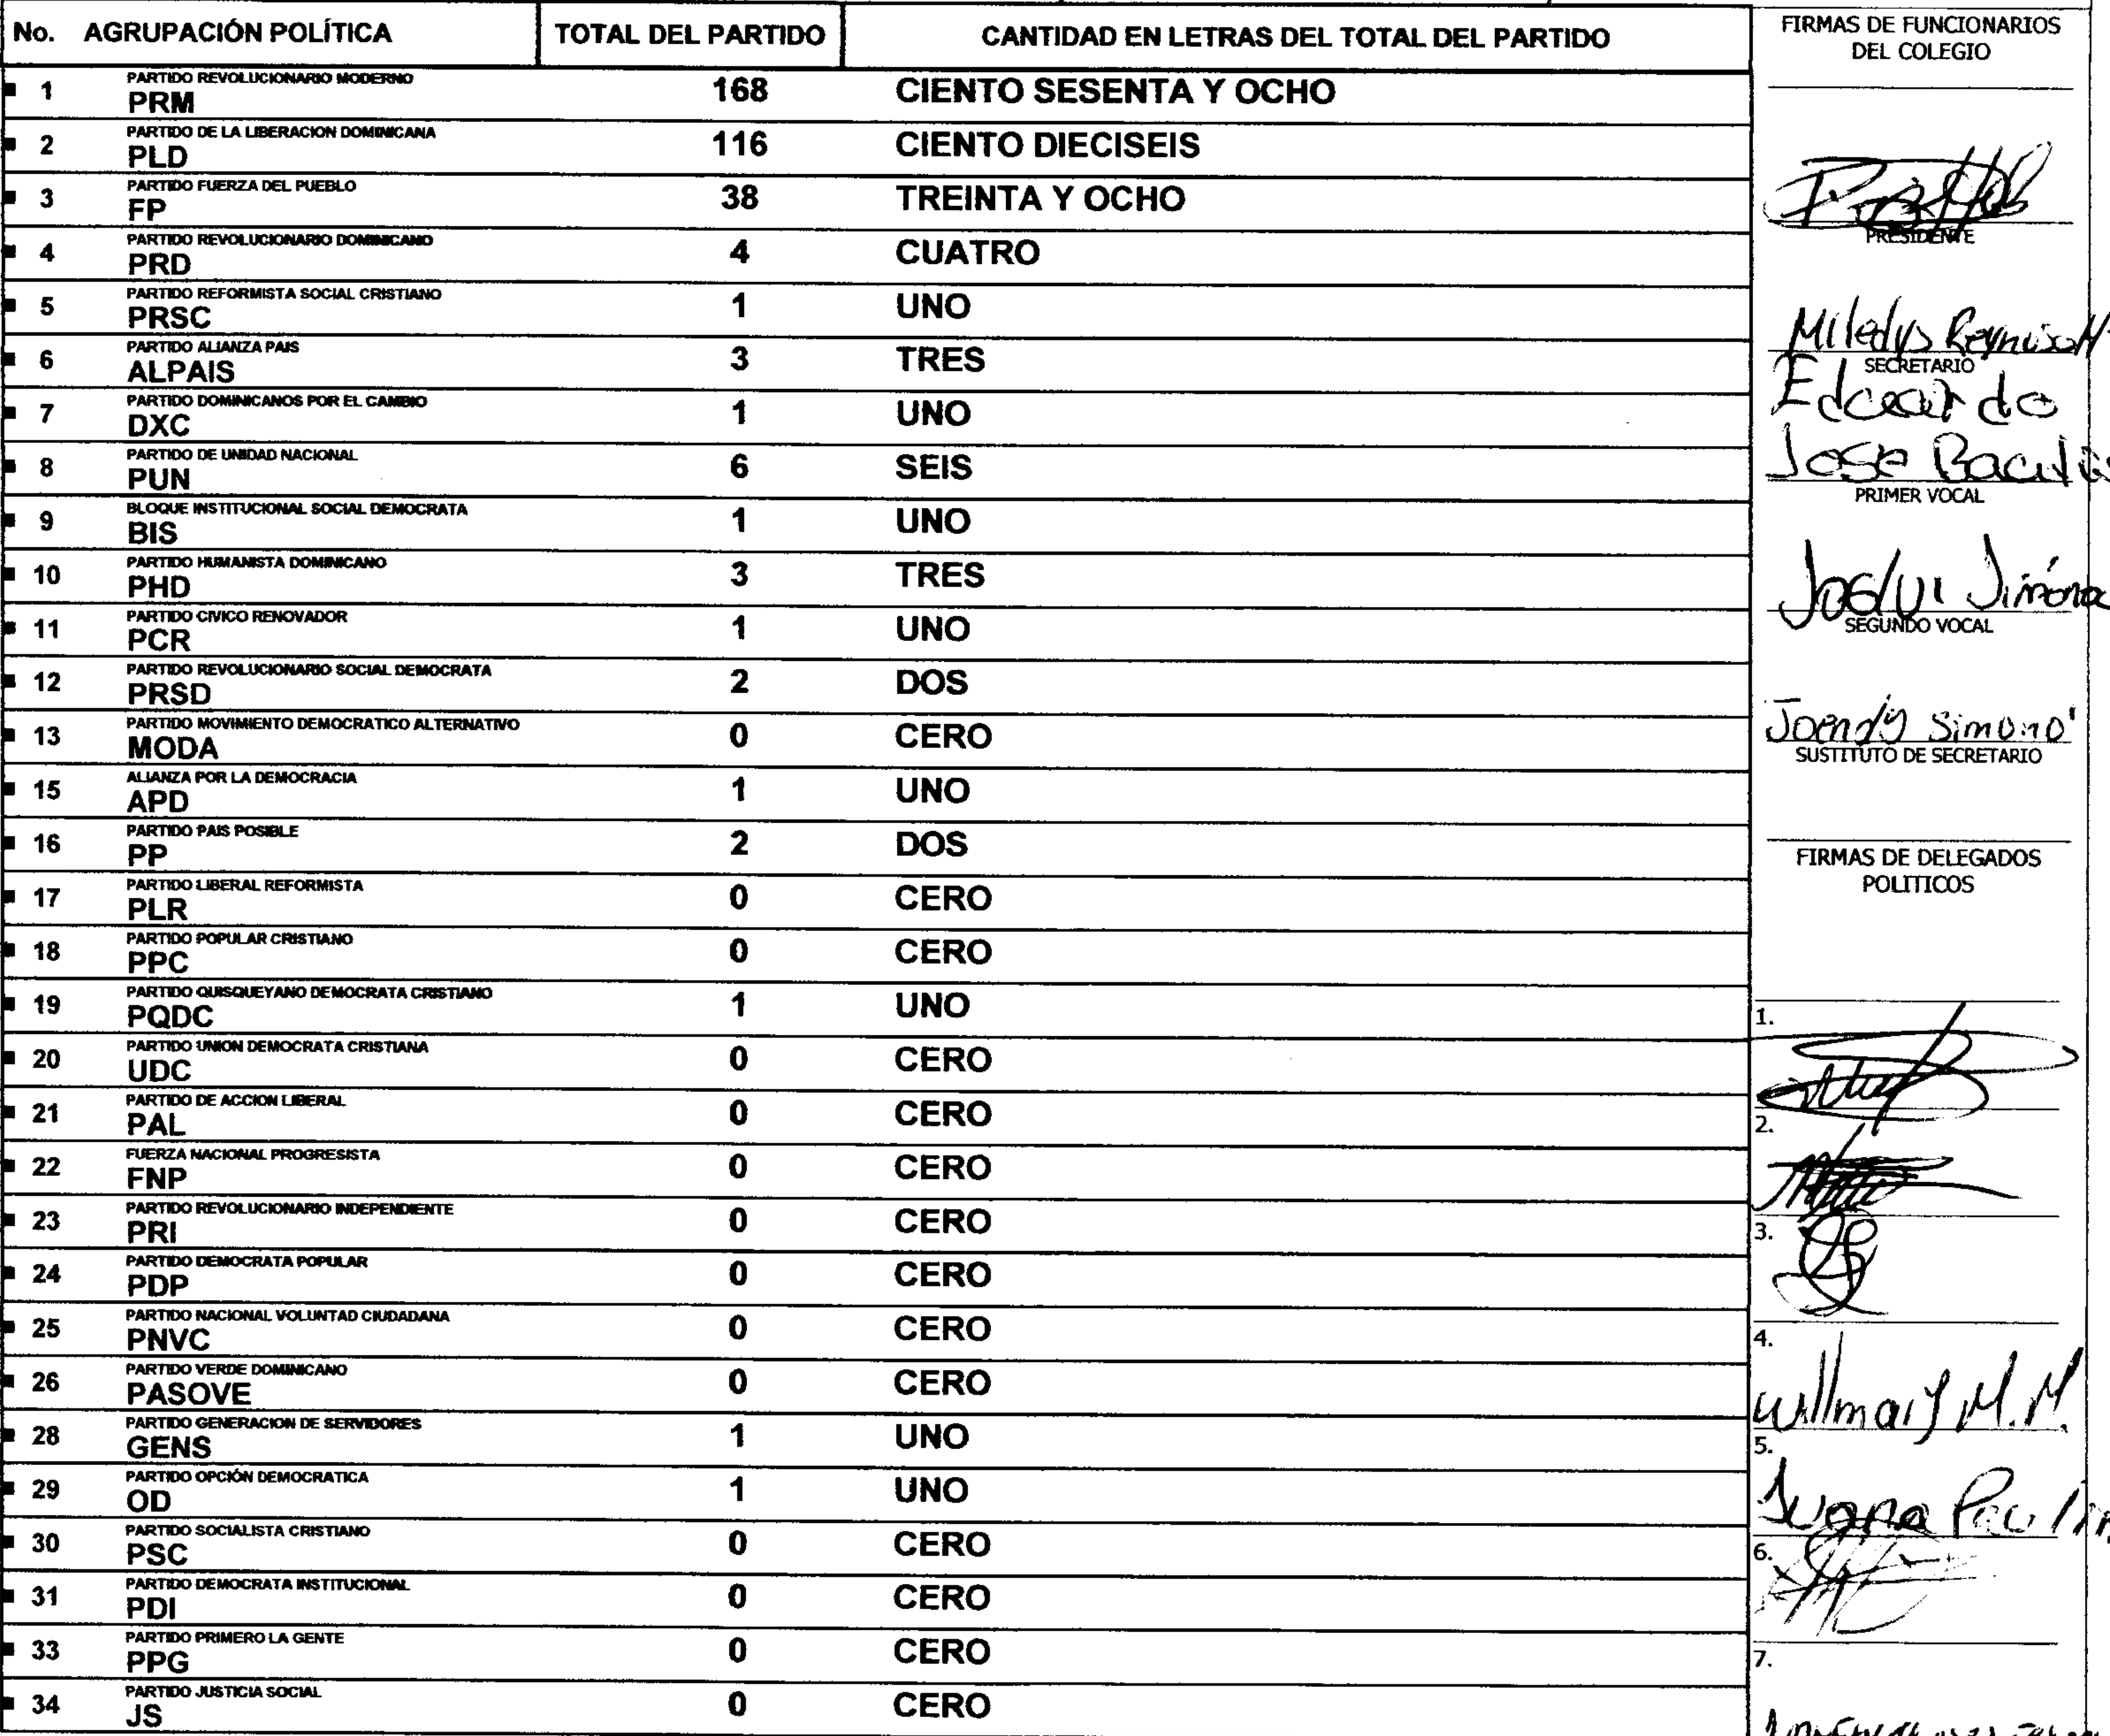 No. AGRUPACIÓN POLÍTICA TOTAL DEL PARTIDO CANTIDAD EN LETRAS DEL TOTAL DEL PARTIDO
PARTIDO REVOLUCIONARIO MODERNO
1 PRM 168 CIENTO SESENTA Y OCHO
PARTIDO DE LA LIBERACION DOMINICANA
2 PLD 116 CIENTO DIECISEIS
PARTIDO FUERZA DEL PUEBLO
3 FP 38 TREINTA Y OCHO
PARTIDO REVOLUCIONARIO DOMINICANO
4 PRD 4 CUATRO
PARTIDO REFORMISTA SOCIAL CRISTIANO
5 PRSC 1 UNO
PARTIDO ALIANZA PAIS
6 ALPAIS 3 TRES
PARTIDO DOMINICANOS POR EL CAMBIO
7 DXC 1 UNO
PARTIDO DE UNIDAD NACIONAL
8 PUN 6 SEIS
BLOQUE INSTITUCIONAL SOCIAL DEMOCRATA
9 BIS 1 UNO
PARTIDO HUMANISTA DOMINICANO
10 PHD 3 TRES
PARTIDO CIVICO RENOVADOR
11 PCR 1 UNO
PARTIDO REVOLUCIONARIO SOCIAL DEMOCRATA
12 PRSD 2 DOS
PARTIDO MOVIMIENTO DEMOCRATICO ALTERNATIVO
13 MODA 0 CERO
ALIANZA POR LA DEMOCRACIA
15 APD 1 UNO
PARTIDO PAIS POSIBLE
16 PP 2 DOS
PARTIDO LIBERAL REFORMISTA
17 PLR 0 CERO
PARTIDO POPULAR CRISTIANO
18 PPC 0 CERO
PARTIDO QUISQUEYANO DEMOCRATA CRISTIANO
19 PQDC 1 UNO
PARTIDO UNION DEMOCRATA CRISTIANA
20 UDC 0 CERO
PARTIDO DE ACCION LIBERAL
21 PAL 0 CERO
FUERZA NACIONAL PROGRESISTA
22 FNP 0 CERO
PARTIDO REVOLUCIONARIO INDEPENDIENTE
23 PRI 0 CERO
PARTIDO DEMOCRATA POPULAR
24 PDP 0 CERO
PARTIDO NACIONAL VOLUNTAD CIUDADANA
25 PNVC 0 CERO
PARTIDO VERDE DOMINICANO
26 PASOVE 0 CERO
PARTIDO GENERACION DE SERVIDORES
28 GENS 1 UNO
PARTIDO OPCIÓN DEMOCRATICA
29 OD 1 UNO
PARTIDO SOCIALISTA CRISTIANO
30 PSC 0 CERO
PARTIDO DEMOCRATA INSTITUCIONAL
31 PDI 0 CERO
PARTIDO PRIMERO LA GENTE
33 PPG 0 CERO
PARTIDO JUSTICIA SOCIAL
34 JS 0 CERO
FIRMAS DE FUNCIONARIOS
DEL COLEGIO
PRESIDENTE
Miledys
SECRETARIO
Eduardo
Jose
PRIMER VOCAL
SEGUNDO VOCAL
SUSTITUTO DE SECRETARIO
FIRMAS DE DELEGADOS
POLITICOS
1.
2.
3.
4.
M.M.
5.
Juana
6.
7.